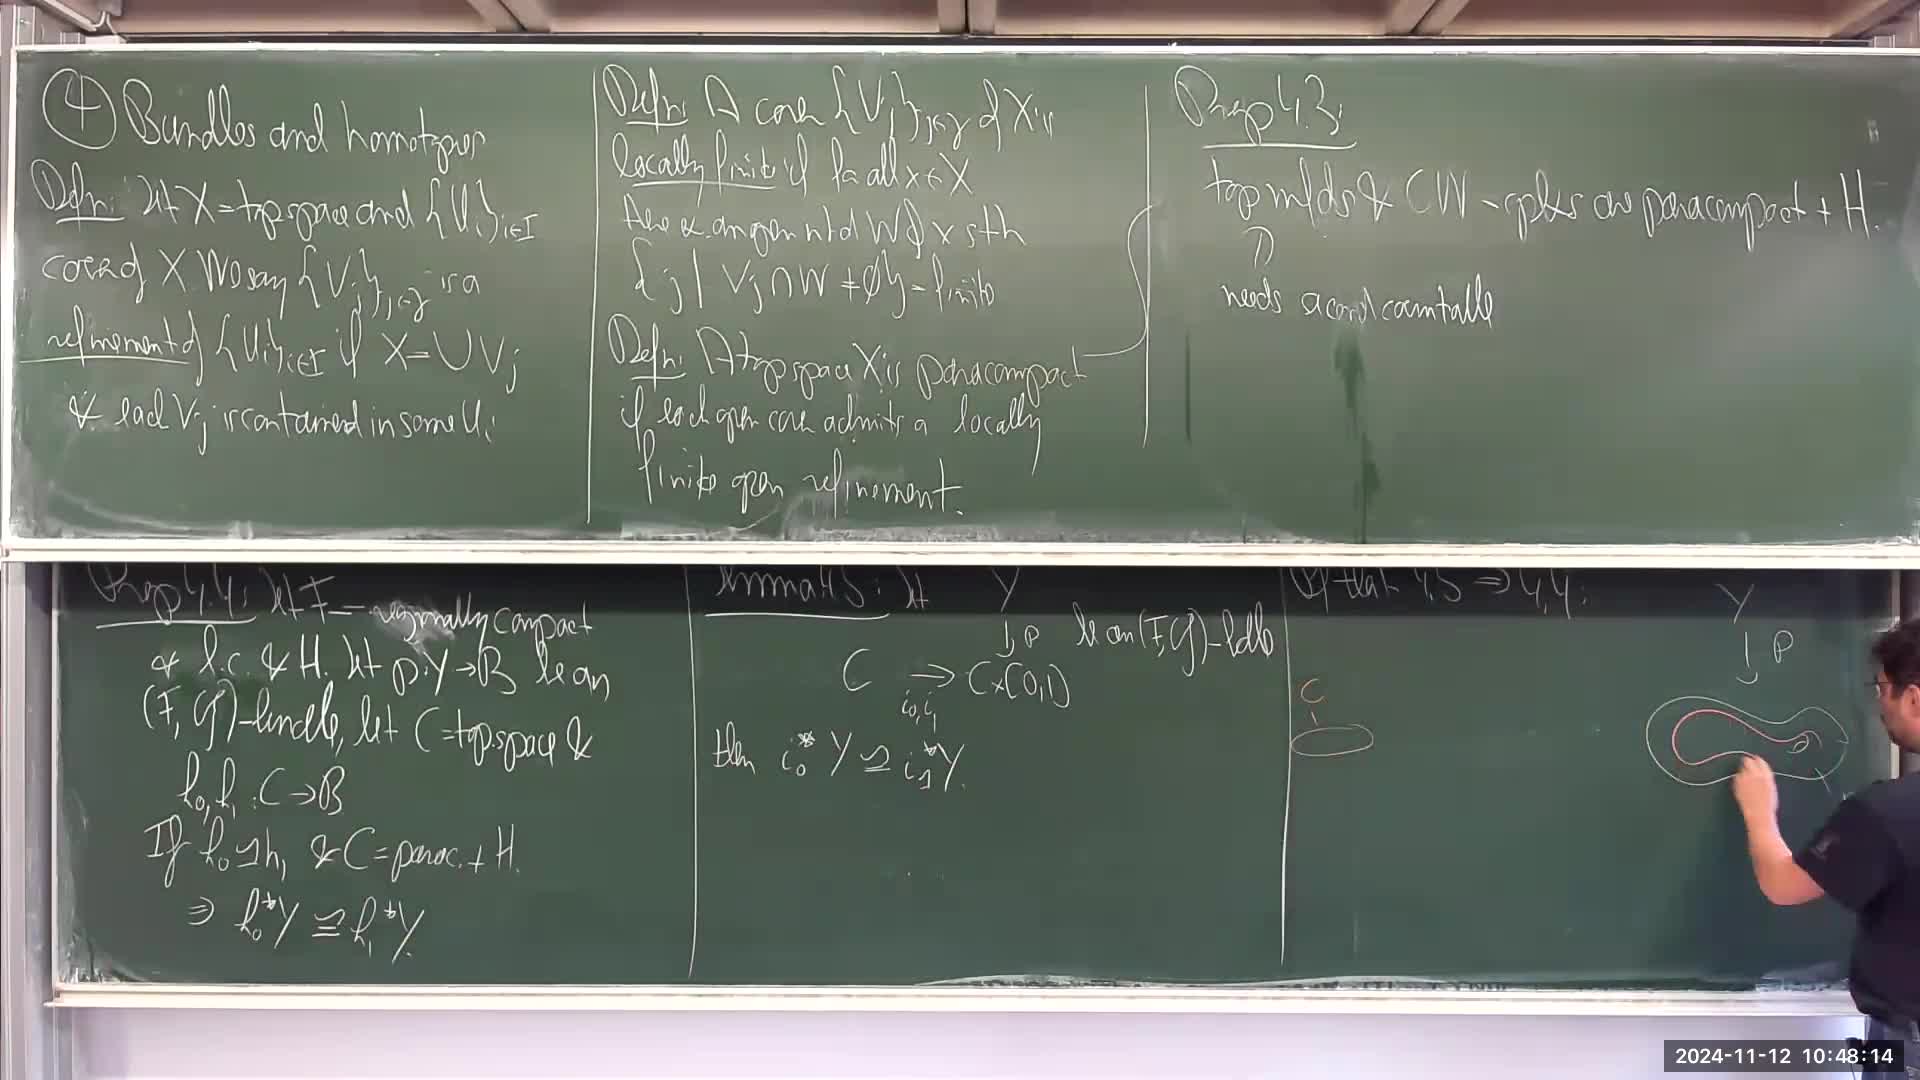 ④ Bundles and homotopies
Defn: Let X = top space and {U_i}_{i∈I}
cover of X We say {V_j}_{j∈J} is a
refinement of {U_i}_{i∈I} if X = ∪ V_j
& each V_j is contained in some U_i
Defn: A cover {V_j}_{j∈J} of X is
locally finite if for all x ∈ X
there ex. an open nbd W of x s th
{ j | V_j ∩ W ≠ ∅} = finite
Defn: A top space X is paracompact
if each open cover admits a locally
finite open refinement.
Prop 4.3:
top mfds & CW-cplxs are paracompact + H.
⇑
needs second countable
Prop 4.4: Let F = regionally compact
& l.c. & H. Let p: Y → B be an
(F, G)-bundle, let C = top. space &
h_0, h_1 : C → B
If h_0 ≃ h_1 & C = parac. + H.
⇒ h_0^* Y ≅ h_1^* Y.
Lemma 4.5: Let Y
↓ p be an (F, G)-bdle
C ⇉ C×[0,1]
i_0, i_1
then i_0^* Y ≅ i_1^* Y.
Pf that 4.5 ⇒ 4.4:
Y
↓ p
C
2024-11-12 10:48:14